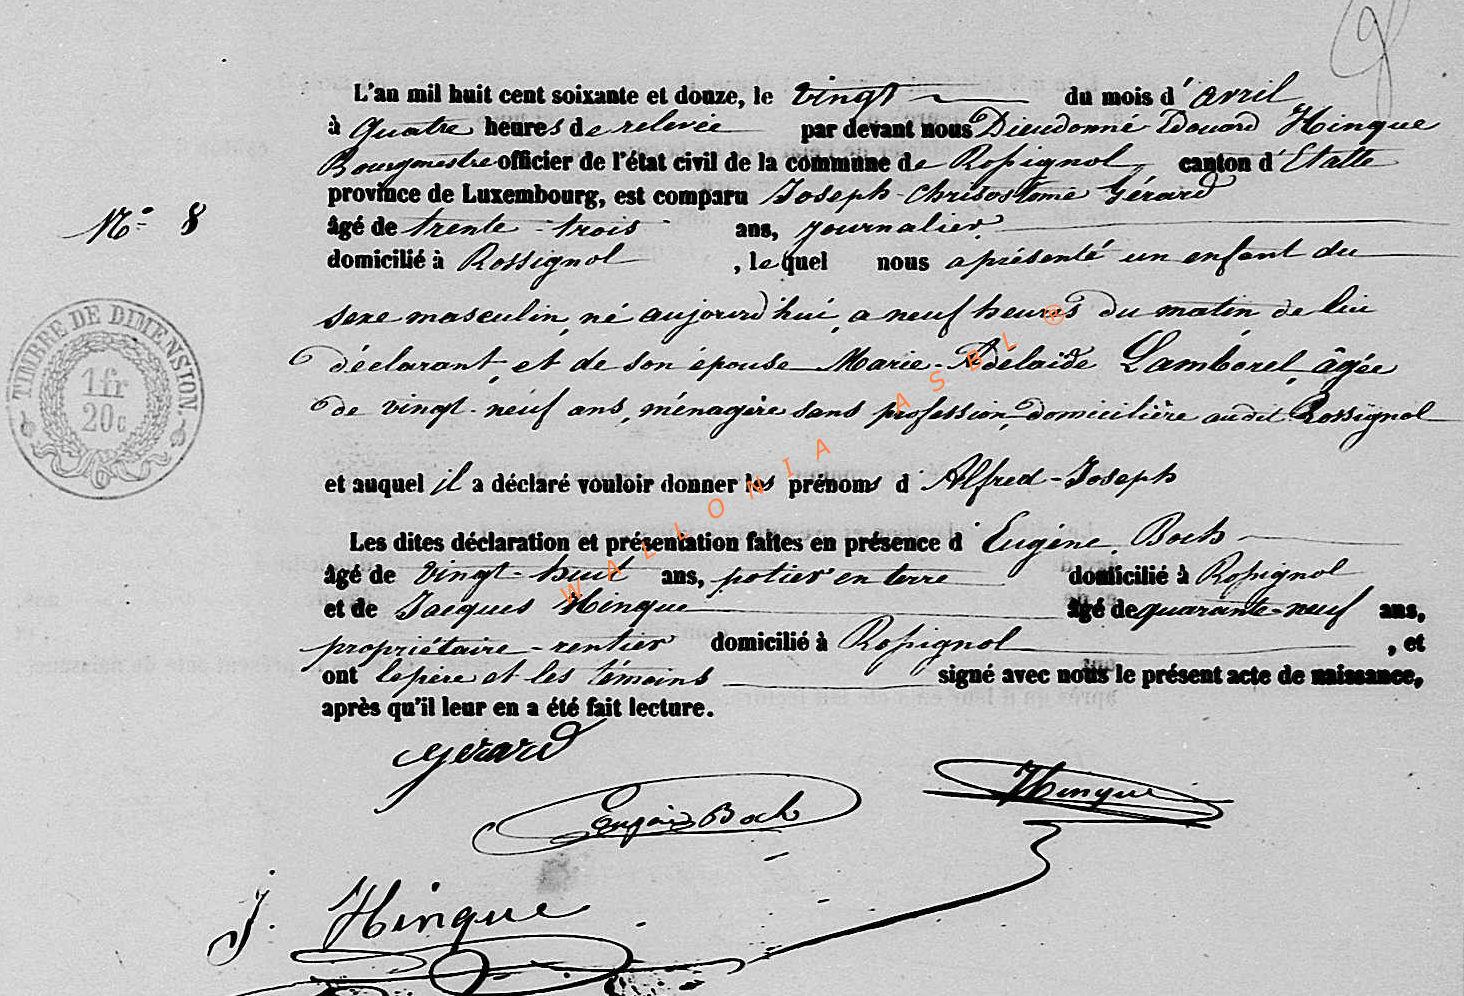 L'an mil huit cent soixante et douze, le vingt du mois d'avril
à quatre heures de relevée par devant nous Dieudonné Edouard Hinque
Bourgmestre officier de l'état civil de la commune de Rossignol, canton d'Etalle
province de Luxembourg, est comparu Joseph-Chrisostome Gérard
N° 8
âgé de trente-trois ans, journalier
domicilié à Rossignol, lequel nous a présenté un enfant du
sexe masculin, né aujourd'hui, a neuf heures du matin de lui
déclarant, et de son épouse Marie-Adélaïde Lamborel, âgée
de vingt-neuf ans, ménagère sans profession, domicilière audit Rossignol
et auquel il a déclaré vouloir donner les prénoms d'Alfred-Joseph
Les dites déclaration et présentation faites en présence d'Eugène Boch
âgé de vingt-huit ans, potier en terre domicilié à Rossignol
et de Jacques Hinque âgé de quarante-neuf ans,
propriétaire-rentier domicilié à Rossignol, et
ont le père et les témoins signé avec nous le présent acte de naissance,
après qu'il leur en a été fait lecture.
Gérard
Eugène Boch
Hinque
J. Hinque
TIMBRE DE DIMENSION.
1 fr
20 c
WALLONIA ASBL ®